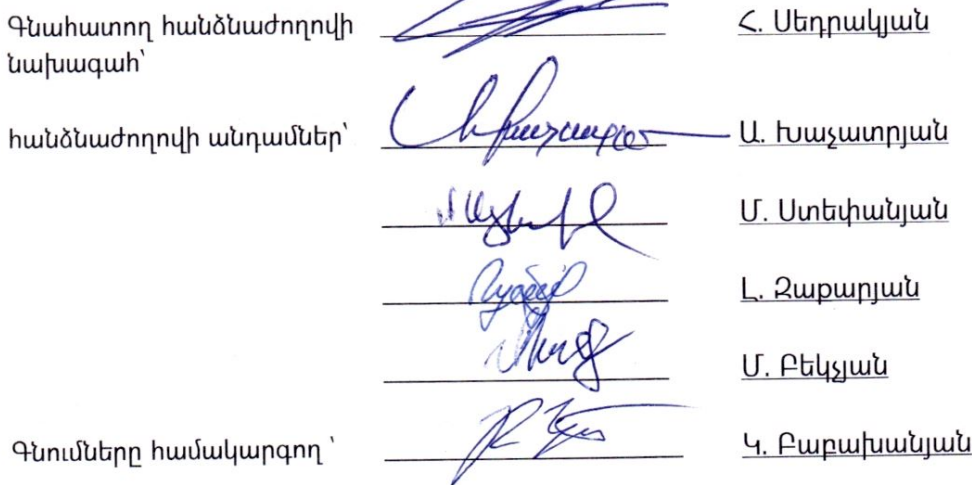 Գնահատող հանձնաժողովի Հ. Սեդրակյան
նախագահ՝
հանձնաժողովի անդամներ՝ Ա. Խաչատրյան
Մ. Ստեփանյան
Լ. Զաքարյան
Մ. Բեկչյան
Գնումները համակարգող ՝ Կ. Բաբախանյան